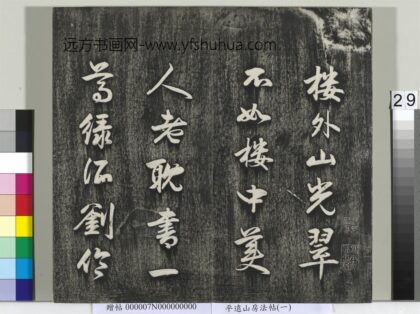 远方书画网-www.yfshuhua.com
楼外山光翠
不如楼中美
人老耽書一
尊緑酒劉伶
29
贈帖 000007N000000000
平遠山房法帖(一)